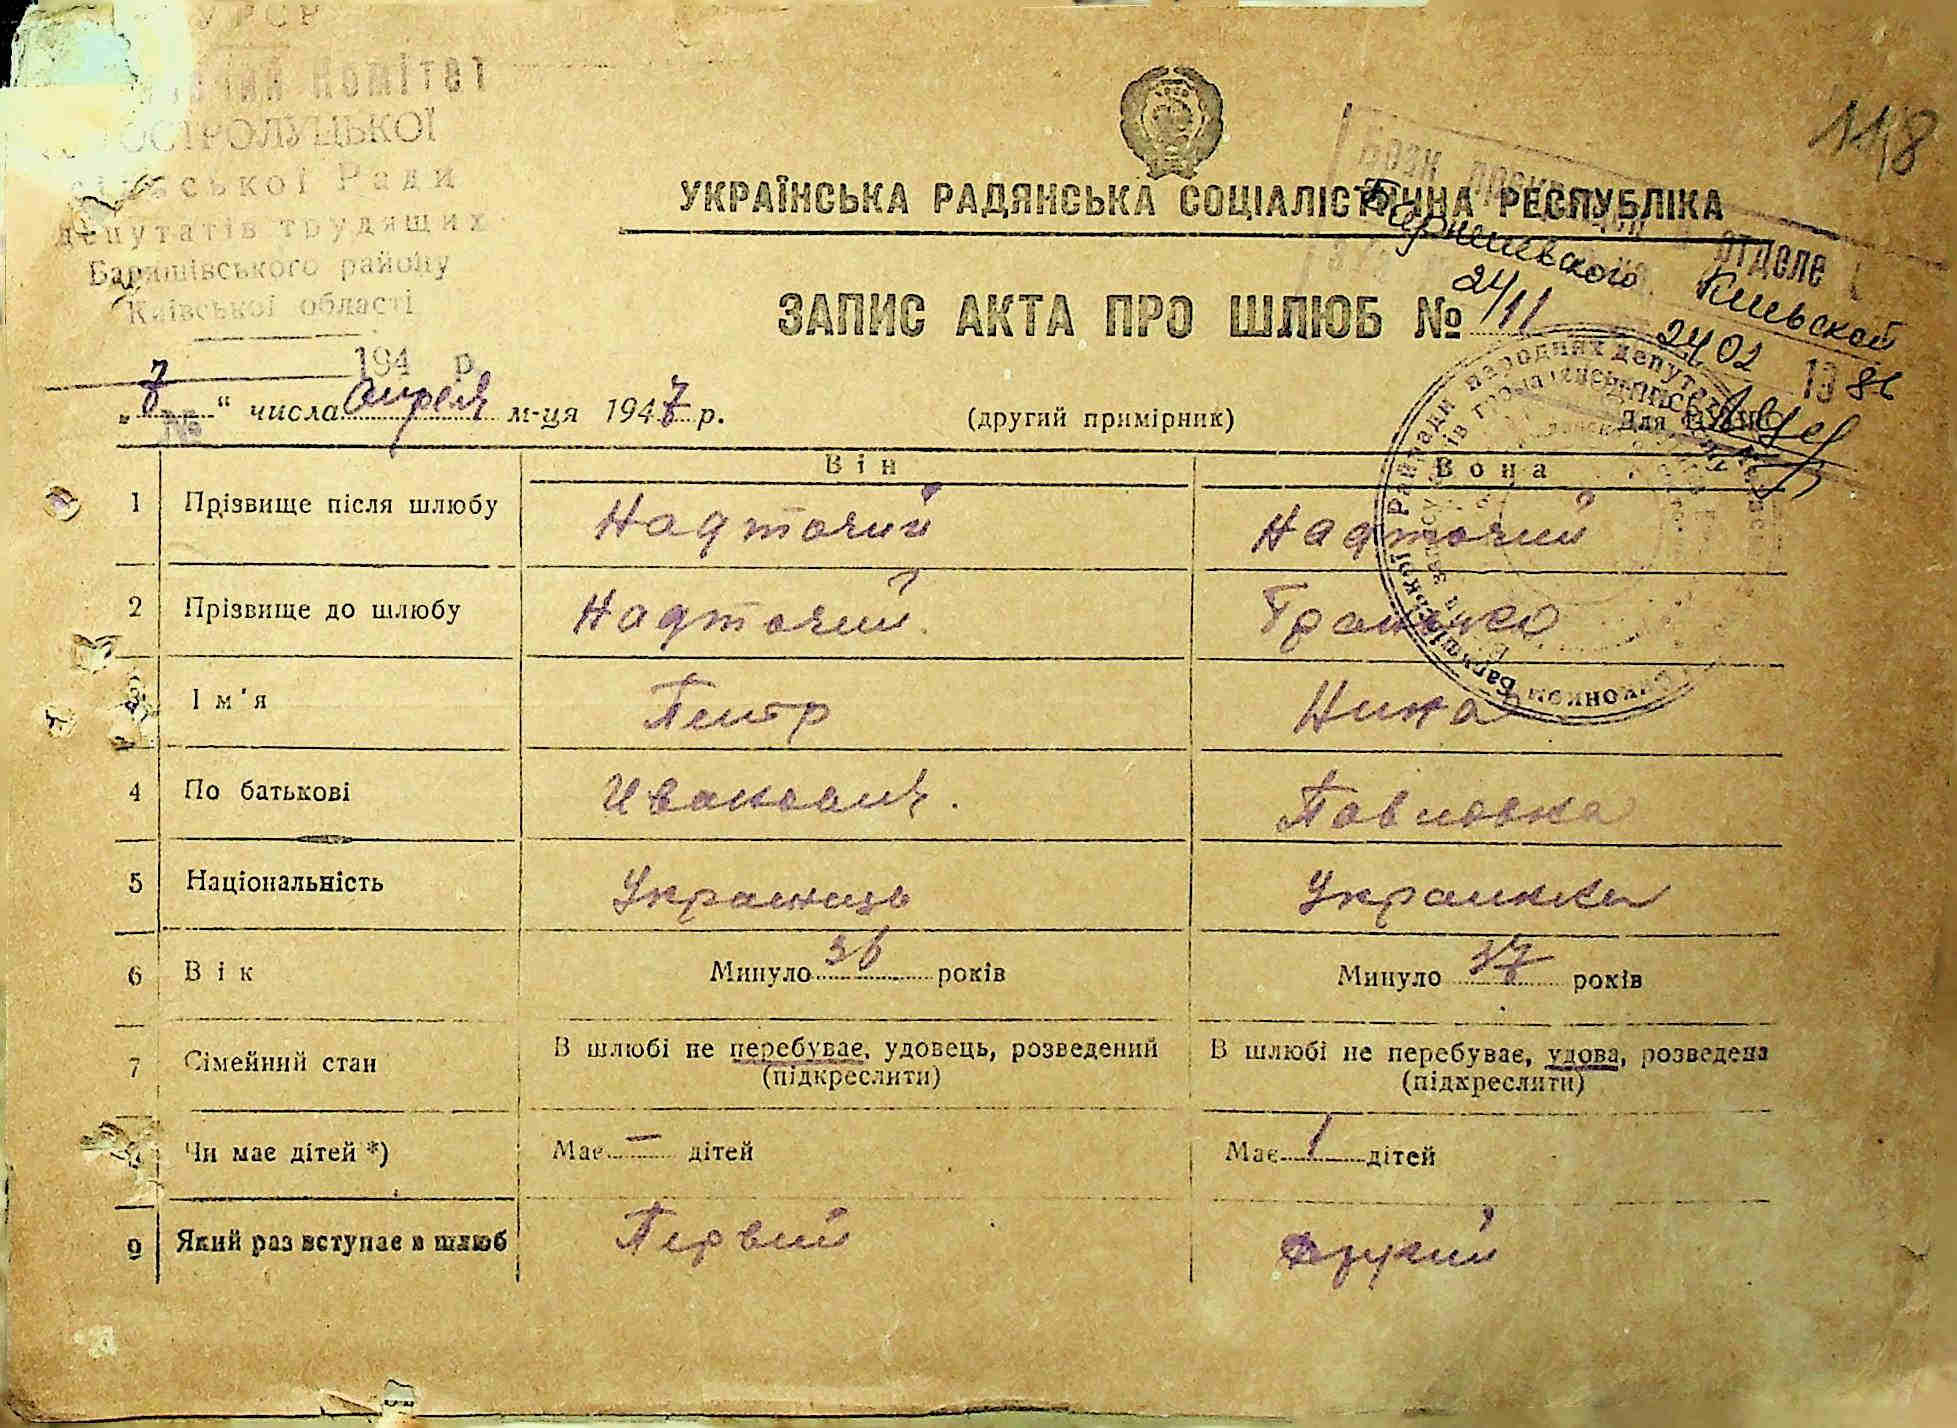 УРСР
Комітет
ОСТРОЛУЦЬКОЇ
сільської Ради
депутатів трудящих
Баришівського району
Київської області
194 р.
№
118
УКРАЇНСЬКА РАДЯНСЬКА СОЦІАЛІСТИЧНА РЕСПУБЛІКА
отделе
Киевской
24/11
24 02 1986
ЗАПИС АКТА ПРО ШЛЮБ №
„7“ числа апреля м-ця 1947 р.
(другий примірник)
Для
Він
Вона
1 Прізвище після шлюбу Надточий Надточий
2 Прізвище до шлюбу Надточий
3 Ім'я Петр Нина
4 По батькові Иванович. Павловна
5 Національність Украинець Украинка
6 Вік Минуло 36 років Минуло 37 років
7 Сімейний стан В шлюбі не перебуває, удовець, розведений В шлюбі не перебуває, удова, розведена
(підкреслити) (підкреслити)
Чи має дітей *) Має — дітей Має 1 дітей
9 Який раз вступає в шлюб Первий другий